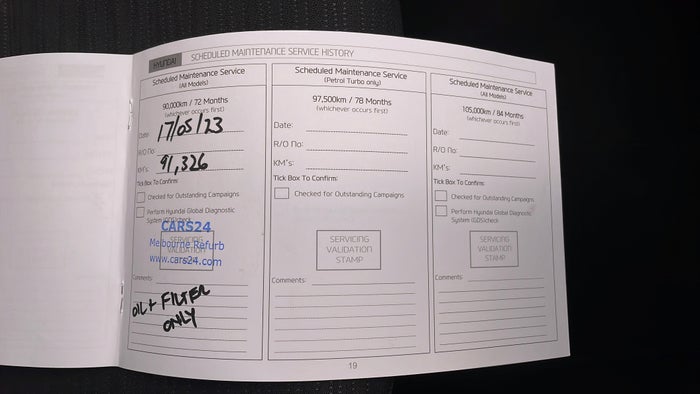 HYUNDAI SCHEDULED MAINTENANCE SERVICE HISTORY
Scheduled Maintenance Service
(All Models)
90,000km / 72 Months
(whichever occurs first)
Date: 17/05/23
R/O No:
KM's: 91,326
Tick Box To Confirm:
Checked for Outstanding Campaigns
Perform Hyundai Global Diagnostic
System (GDS)check
CARS24
Melbourne Refurb
www.cars24.com
SERVICING
VALIDATION
Comments:
OIL + FILTER
ONLY
Scheduled Maintenance Service
(Petrol Turbo only)
97,500km / 78 Months
(whichever occurs first)
Date:
R/O No:
KM's:
Tick Box To Confirm:
Checked for Outstanding Campaigns
SERVICING
VALIDATION
STAMP
Comments:
Scheduled Maintenance Service
(All Models)
105,000km / 84 Months
(whichever occurs first)
Date:
R/O No:
KM's:
Tick Box To Confirm:
Checked for Outstanding Campaigns
Perform Hyundai Global Diagnostic
System (GDS)check
SERVICING
VALIDATION
STAMP
Comments:
19